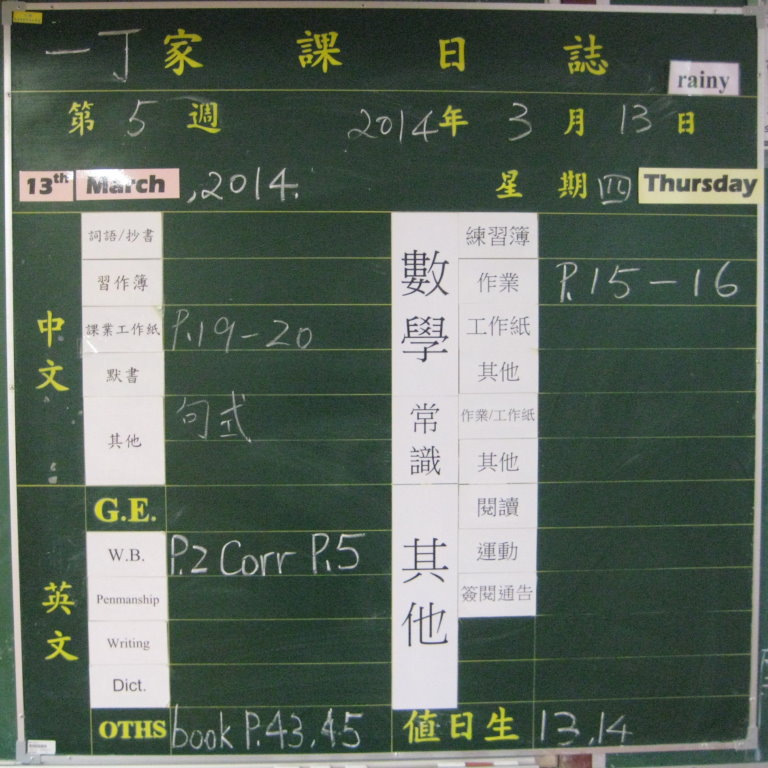 一丁家課日誌
rainy
第5週 2014年3月13日
13th March ,2014. 星期四 Thursday
中文
詞語/抄書
習作簿
課業工作紙 P.19-20
默書
其他 句式
英文
G.E.
W.B. P.2 Corr P.5
Penmanship
Writing
Dict.
OTHS book P.43,45
數學
練習簿
作業 P.15-16
工作紙
其他
常識
作業/工作紙
其他
其他
閱讀
運動
簽閱通告
值日生 13,14